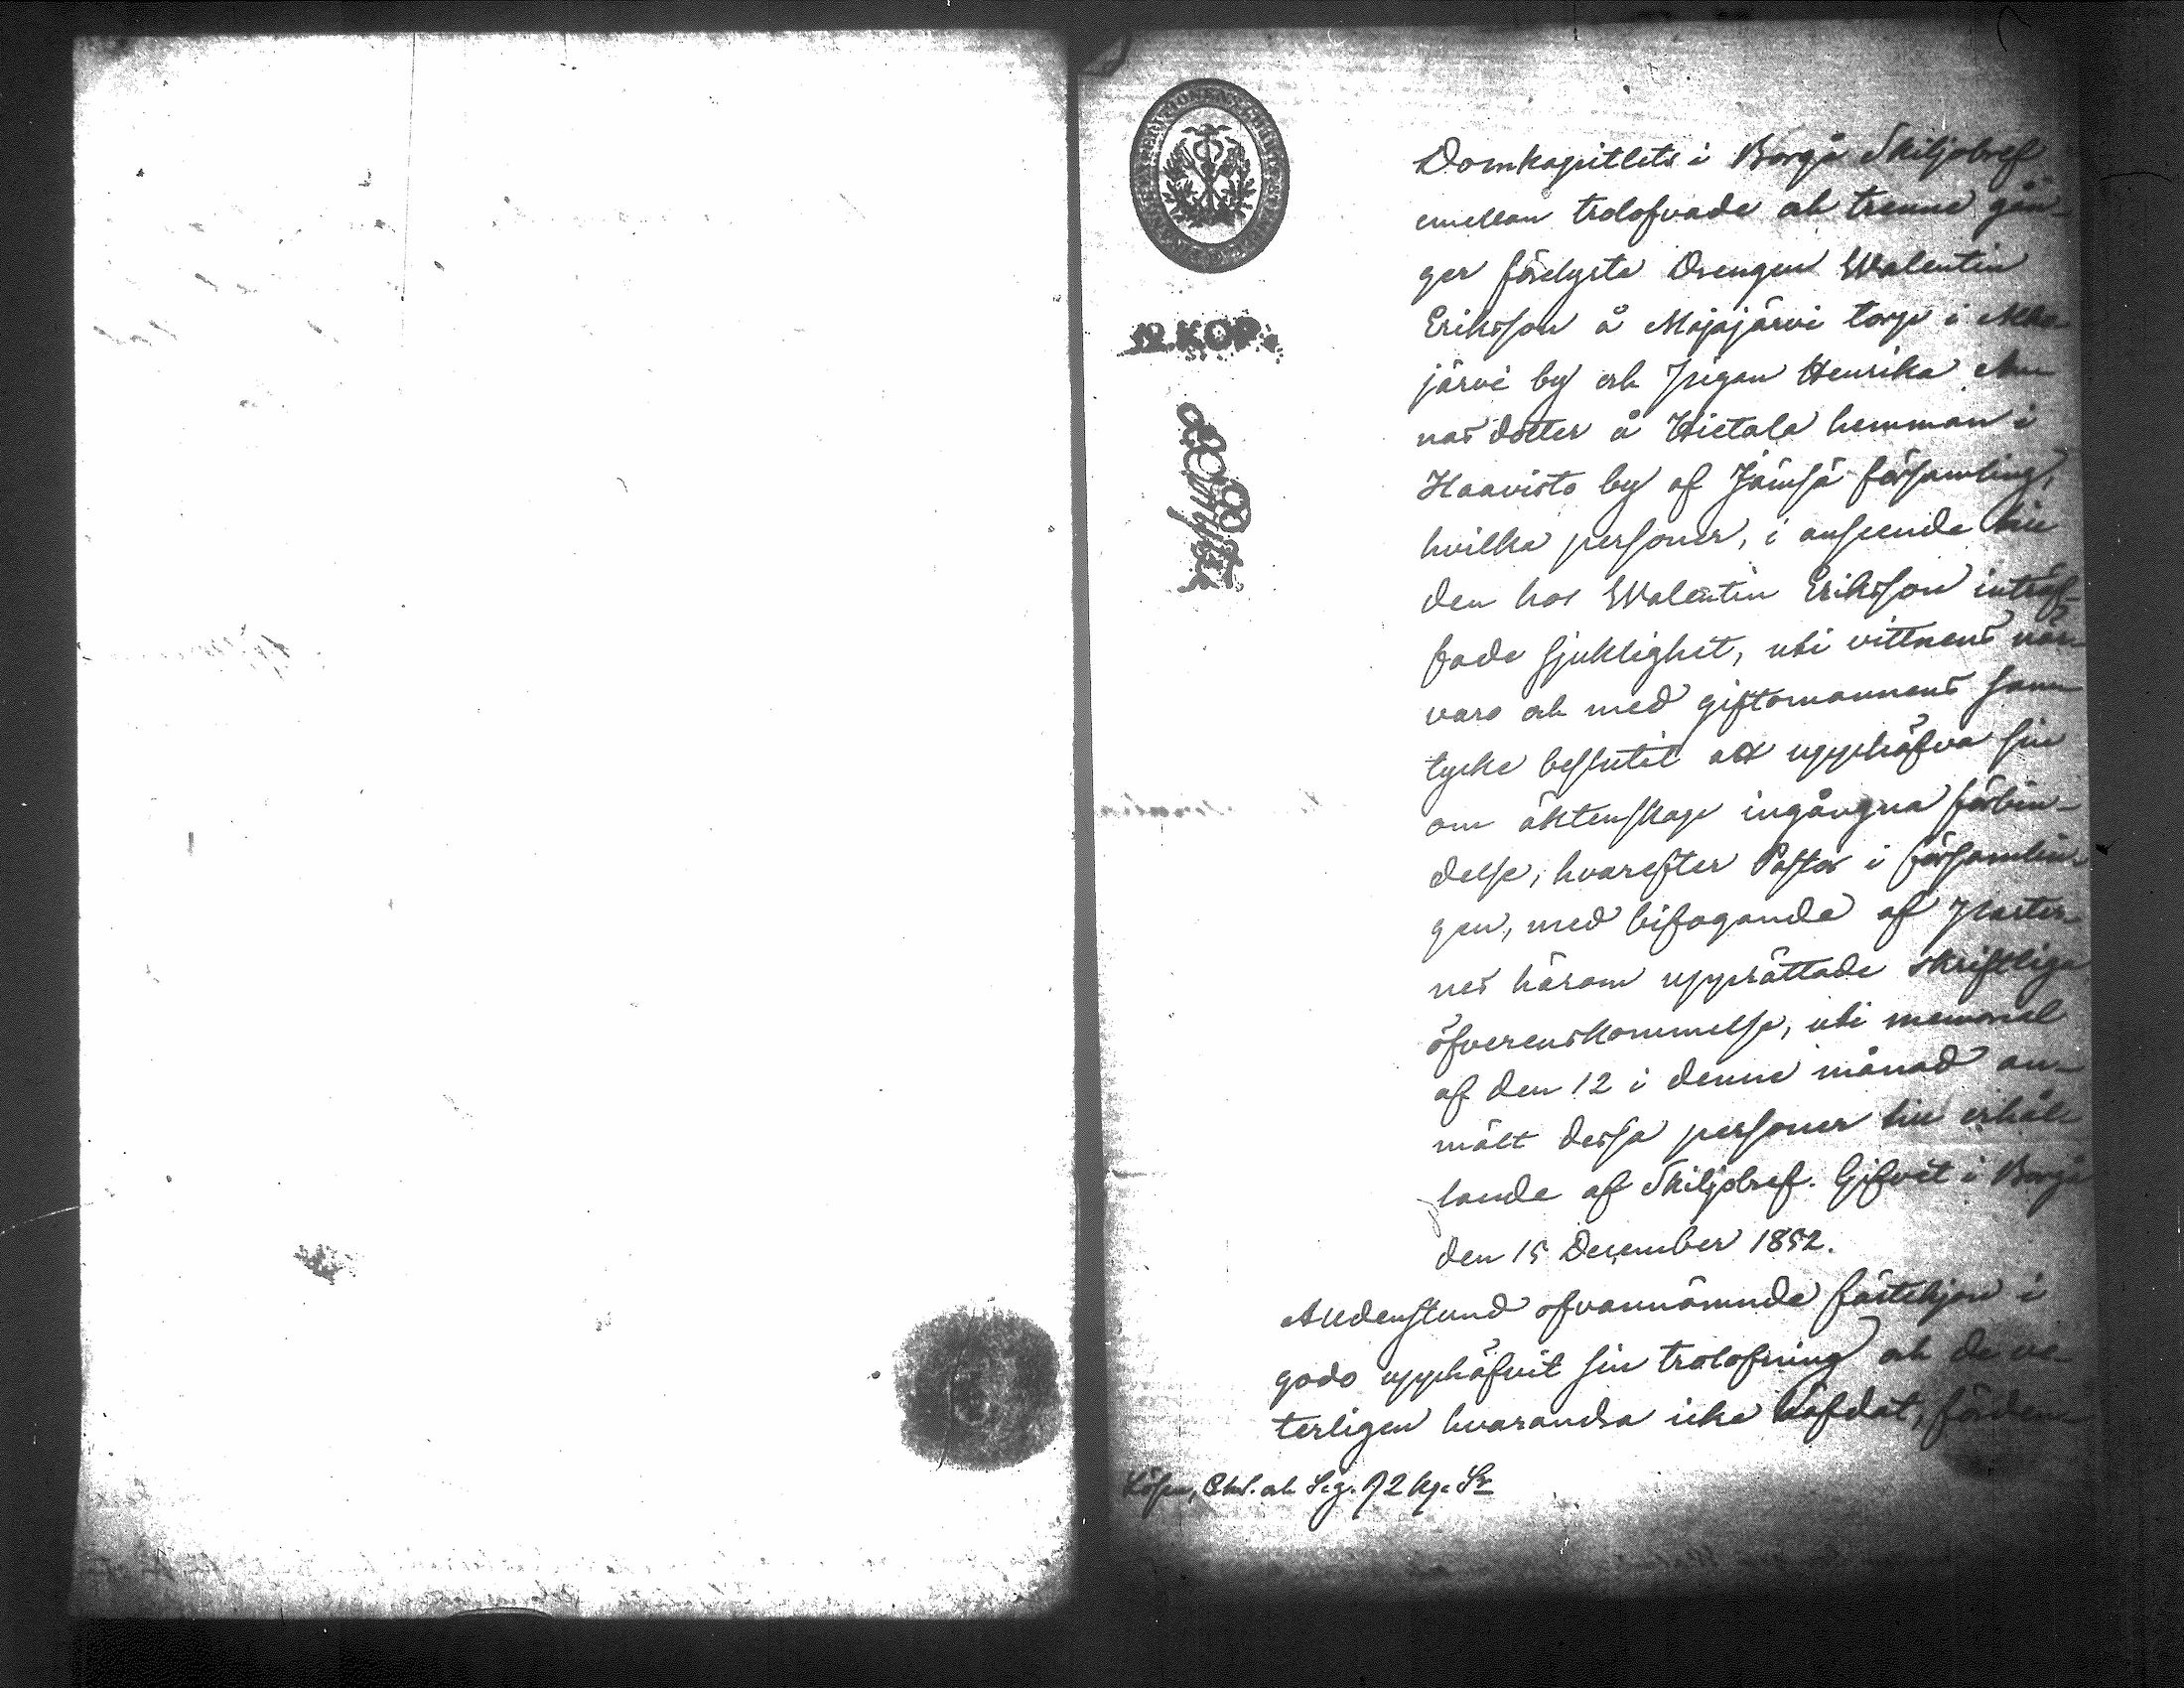 12. KOP.
Domkapitlets i Borgå Skiljobref
emellan trolofvade och trenne gån-
ger förelysta Drengen Walentin
Eriksson å Majajärvi torp i
järvi by och Pigan Henrika An
nas dotter å Hietala hemman i
Haavisto by af Jämsä församling,
hvilka personer, i anseende till
den hos Walentin Eriksson inträf-
fade sjuklighet, uti vittnens när-
varo och med giftomannens sam-
tycke beslutit att upphäfva sin
om äktenskap ingångna förbin-
delse, hvarefter Pastor i församlin-
gen, med bifogande af parter-
nes härom upprättade skriftliga
öfverenskommelse, uti memorial
af den 12 i denne månad an-
mält dessa personer till erhål-
lande af Skiljobref. Gifvet i Borgå
den 15 December 1852.
Alldenstund ofvannämnde fästehjon i
godo upphäfvit sin trolofning och de ve-
terligen hvarandra icke häfdat, fördens-
Lösen, Chs. och Sig. 72 kp. Sr